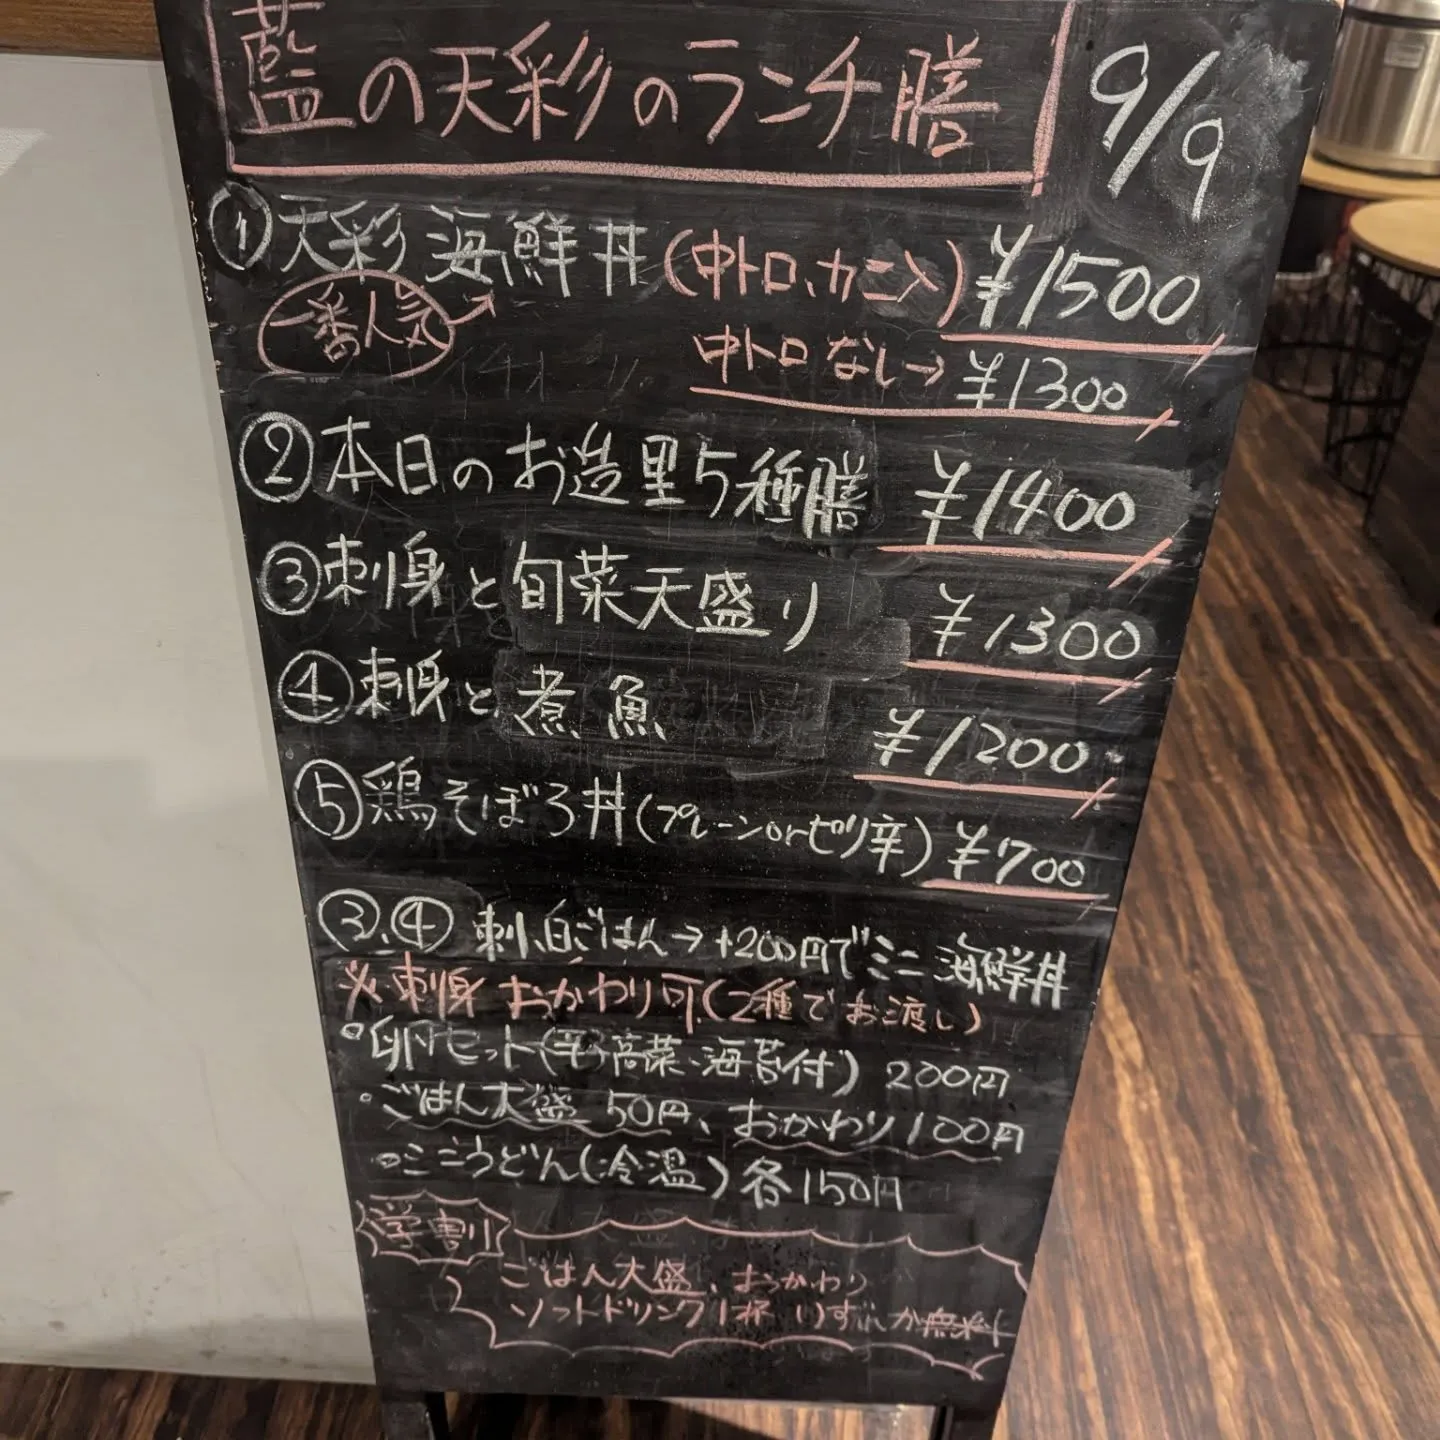 藍の天彩のランチ膳 9/9
①天彩海鮮丼(中トロ、カニ入)¥1500
一番人気
中トロなし→¥1300
②本日のお造里5種膳 ¥1400
③刺身と旬菜天盛り ¥1300
④刺身と煮魚 ¥1200
⑤鶏そぼろ丼(プレーンorピリ辛)¥700
③、④ 刺、白ごはん→+200円でミニ海鮮丼
※刺身おかわり可(2種でお渡し)
卵セット(辛子高菜、海苔付)200円
ごはん大盛 50円、おかわり100円
ミニうどん(冷温)各150円
学割
ごはん大盛、おかわり
ソフトドリンク1杯 いずれか無料